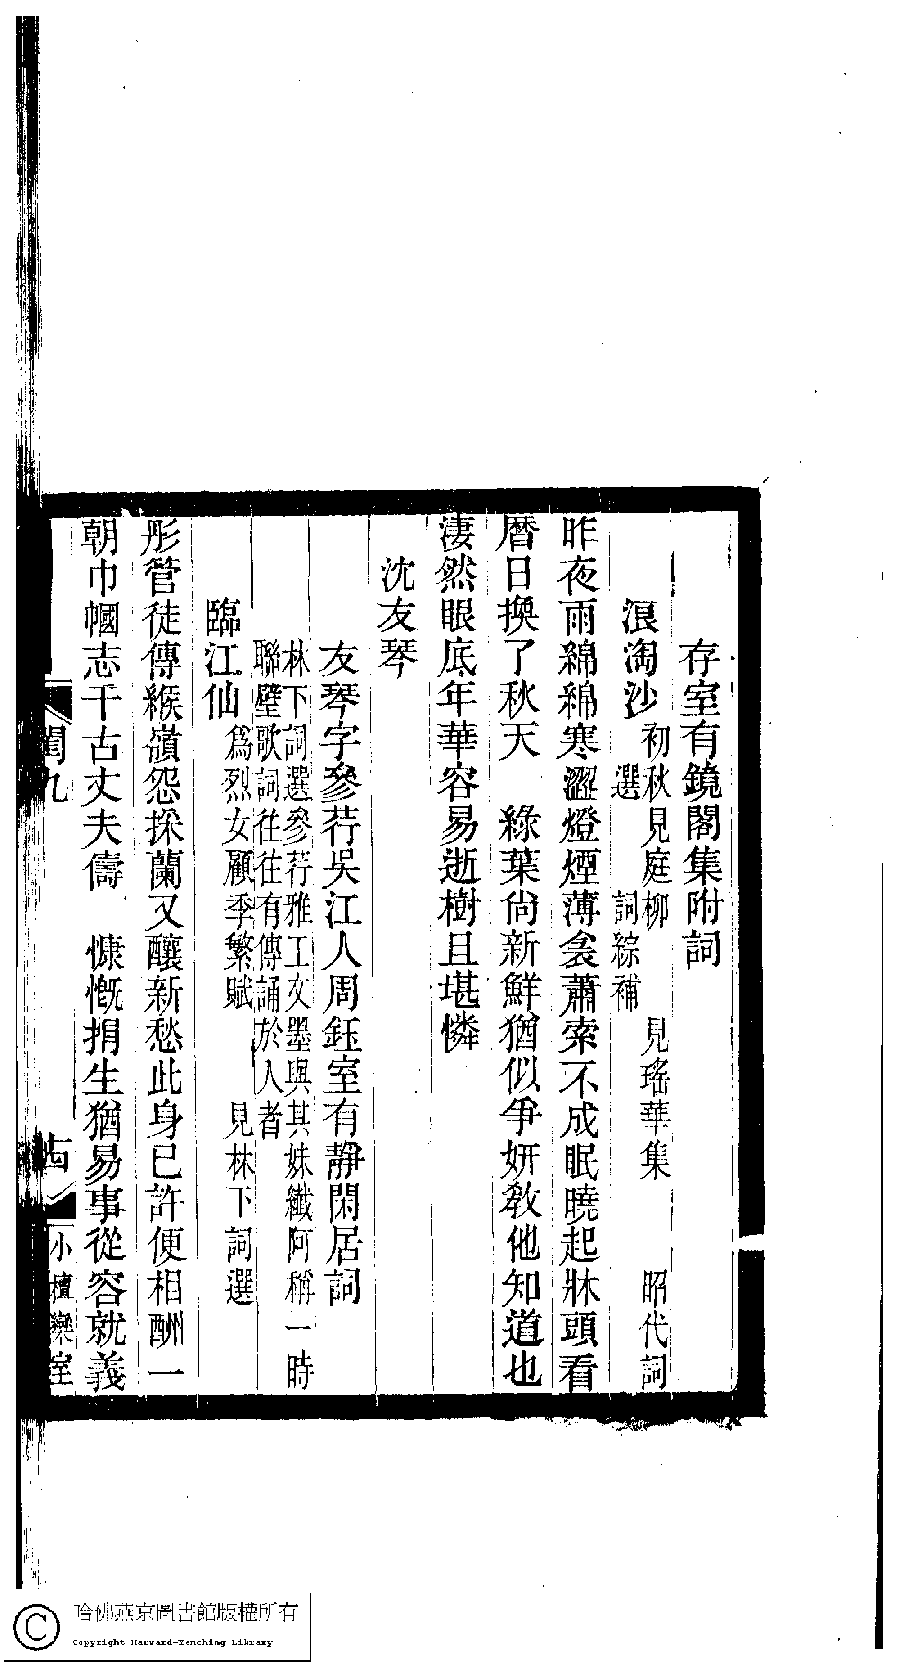 存室有鏡閣集附詞
浪淘沙 初秋見庭柳 見瑤華集 昭代詞
選 詞綜補
昨夜雨綿綿寒澀燈煙薄衾蕭索不成眠曉起牀頭看
曆日換了秋天 綠葉尙新鮮猶似爭妍敎他知道也
淒然眼底年華容易逝樹且堪憐
沈友琴
友琴字參荇吳江人周鈺室有靜閑居詞
林下詞選參荇雅工文墨與其妹纖阿稱一時
聯璧歌詞往往有傳誦於人者
臨江仙 爲烈女顧季繁賦 見林下詞選
彤管徒傳緱嶺怨採蘭又釀新愁此身已許便相酬一
朝巾幗志千古丈夫儔 慷慨捐生猶易事從容就義
閨九
古
小檀欒室
哈佛燕京圖書館版權所有
Copyright Harvard-Yenching Library